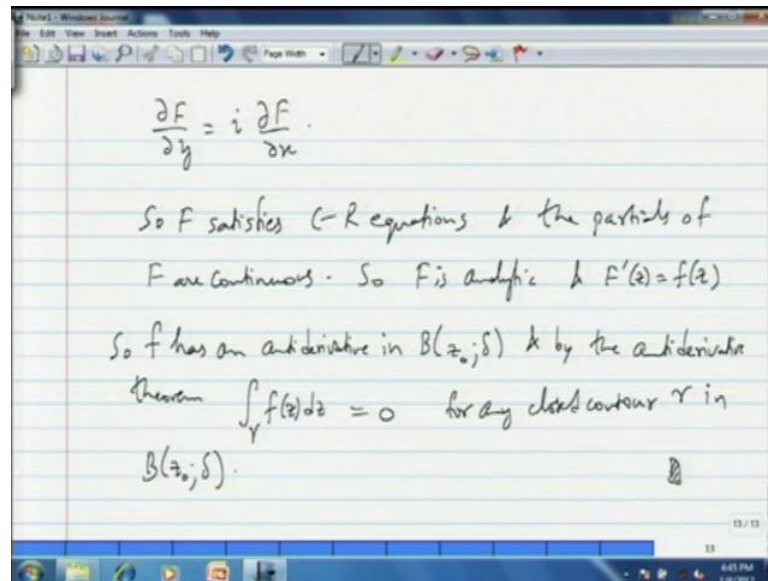 Note1 - Windows Journal
File Edit View Insert Actions Tools Help
Page Width
∂F/∂y = i ∂F/∂x .
So F satisfies C-R equations & the partials of
F are continuous. So F is analytic & F'(z) = f(z)
So f has an antiderivative in B(z₀;δ) & by the antiderivative
theorem ∫_γ f(z)dz = 0 for any closed contour γ in
B(z₀;δ).
13/13
13
4:45 PM